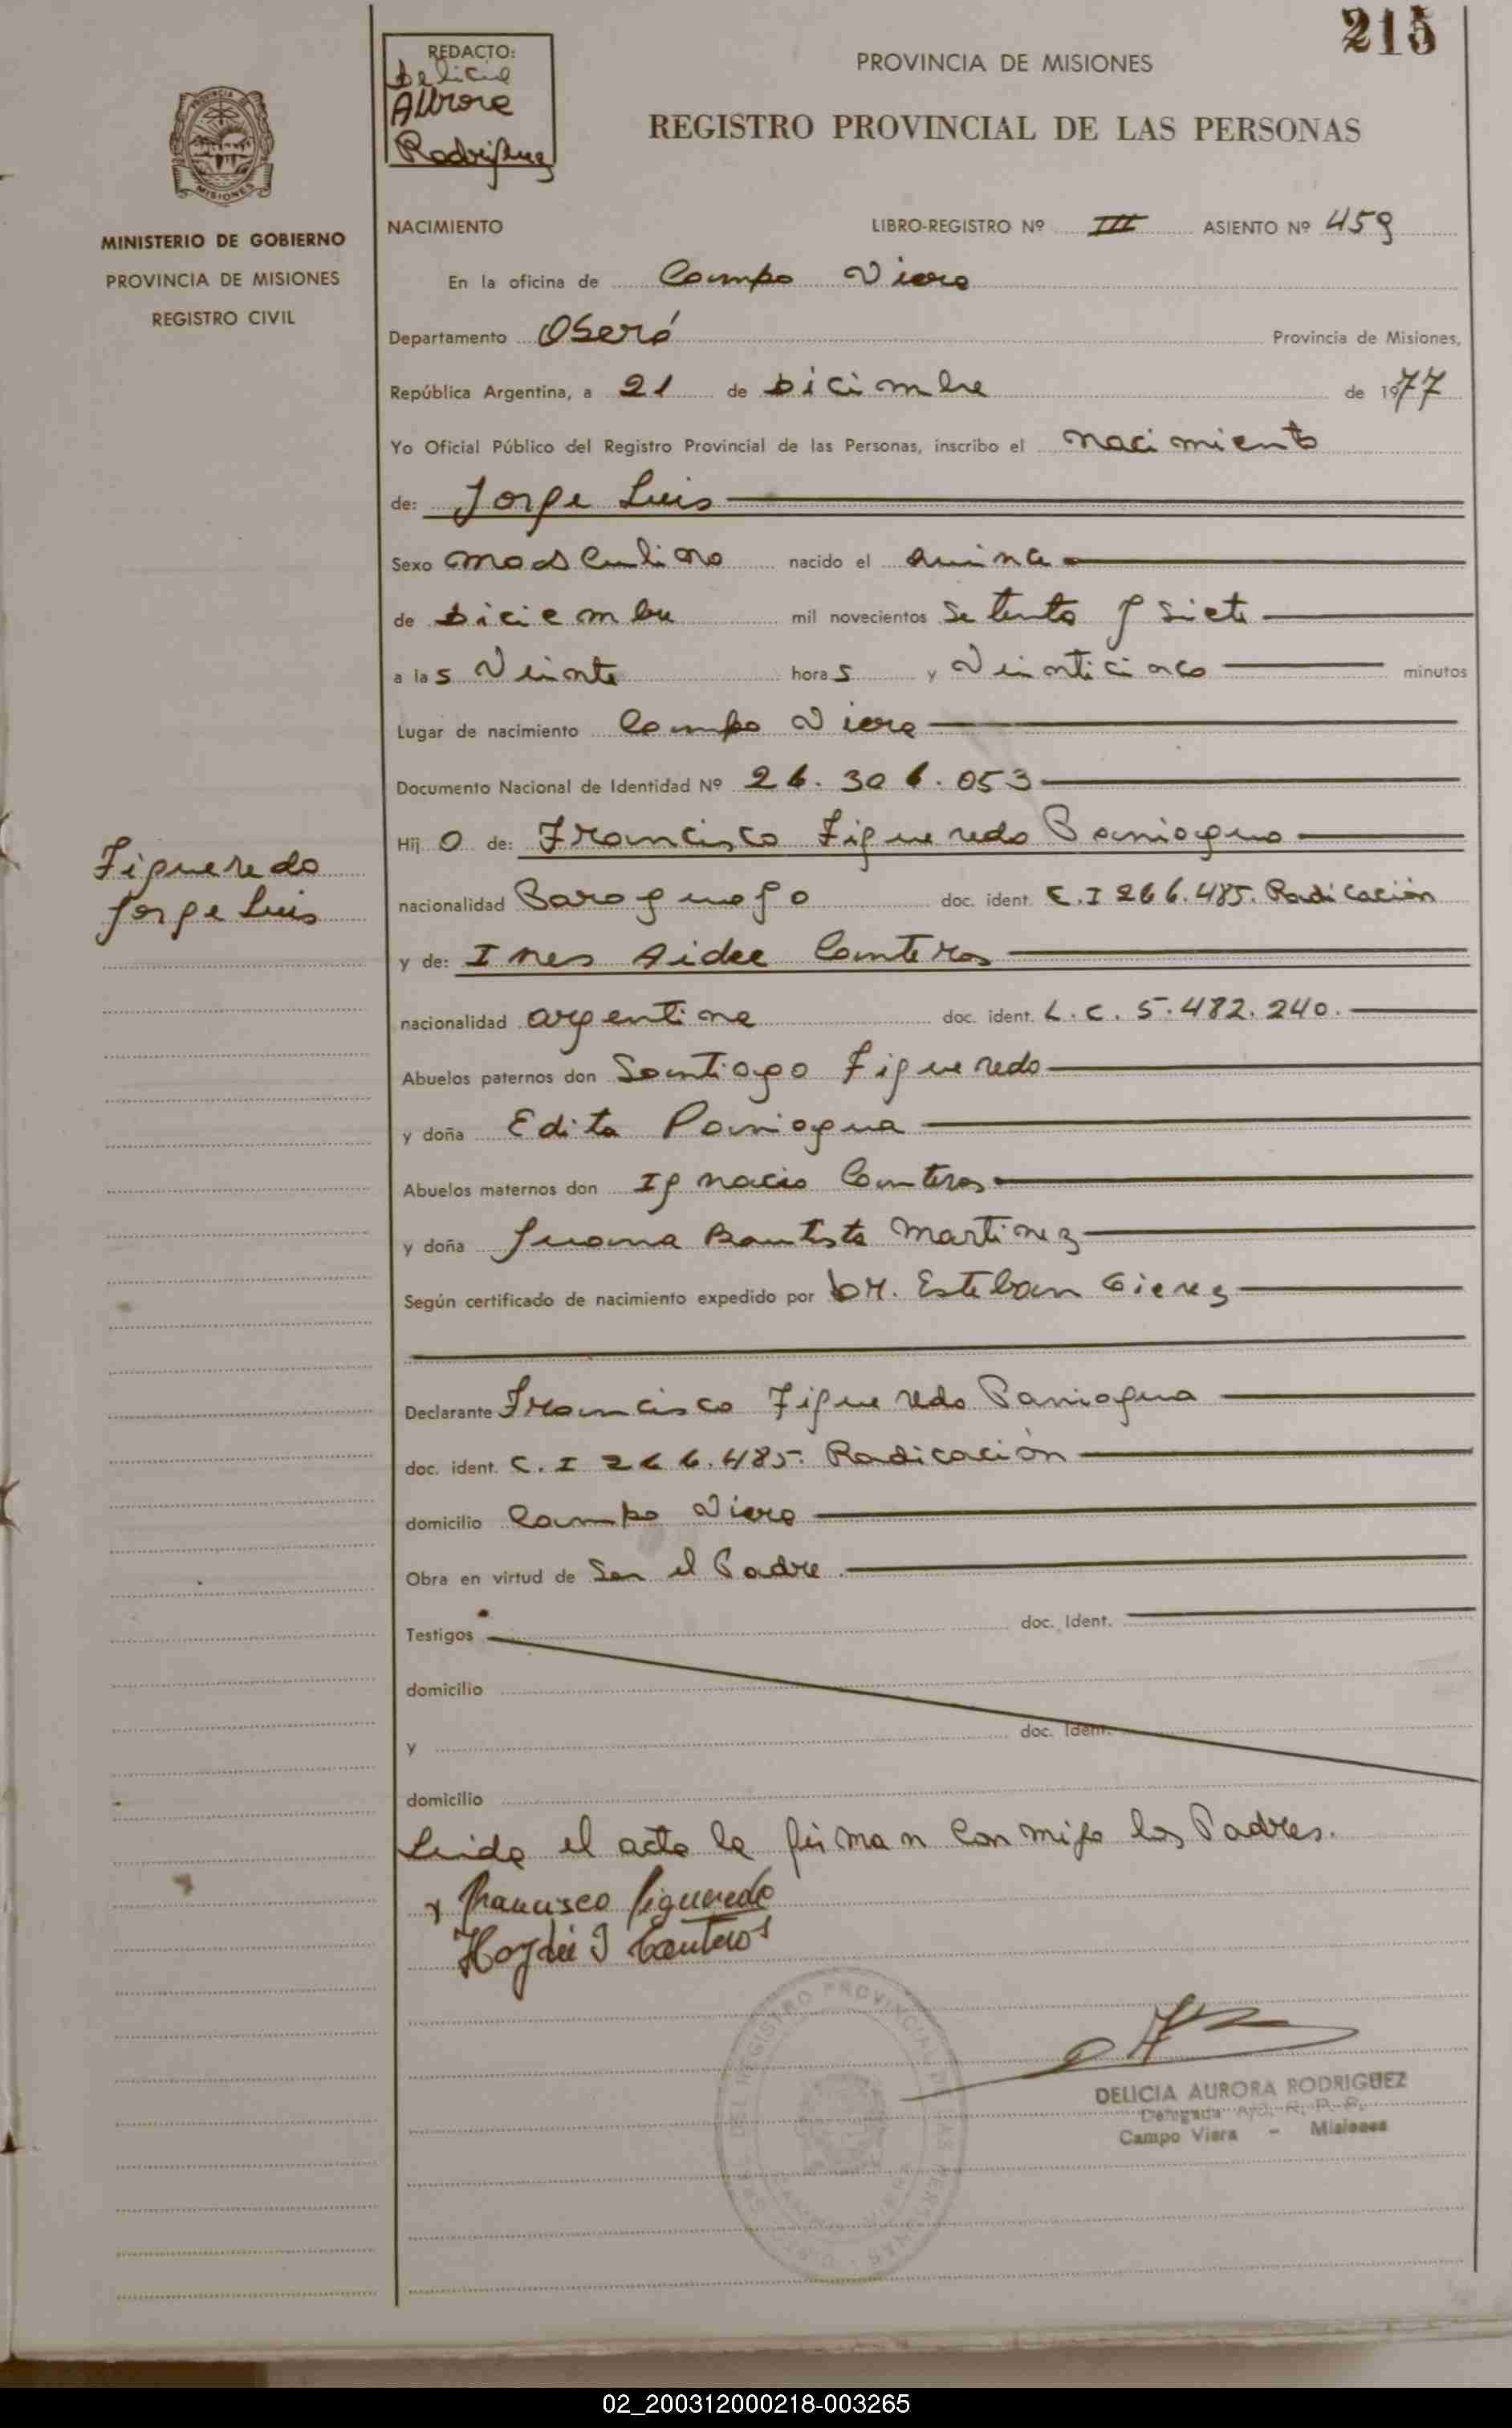 215
REDACTO:
Delicia
Aurora
Rodriguez
PROVINCIA DE MISIONES
REGISTRO PROVINCIAL DE LAS PERSONAS
PROVINCIA DE
MISIONES
MINISTERIO DE GOBIERNO
PROVINCIA DE MISIONES
REGISTRO CIVIL
NACIMIENTO LIBRO-REGISTRO Nº III ASIENTO Nº 459
En la oficina de Campo Viera
Departamento Oberá Provincia de Misiones,
República Argentina, a 21 de Diciembre de 1977
Yo Oficial Público del Registro Provincial de las Personas, inscribo el nacimiento
de: Jorge Luis
Sexo masculino nacido el quince
de Diciembre mil novecientos setenta y siete
a las veinte horas y veinticinco minutos
Lugar de nacimiento Campo Viera
Documento Nacional de Identidad Nº 26.306.053
Hijo de: Francisco Figueredo Paniagua
Figueredo
Jorge Luis
nacionalidad Paraguayo doc. ident. C.I 266.485. Radicación
y de: Ines Aidee Canteros
nacionalidad argentina doc. ident. L.C. 5.482.240.
Abuelos paternos don Santiago Figueredo
y doña Edita Paniagua
Abuelos maternos don Ignacio Canteros
y doña Juana Bautista Martinez
Según certificado de nacimiento expedido por Dr. Esteban
Declarante Francisco Figueredo Paniagua
doc. ident. C.I 266.485. Radicación
domicilio Campo Viera
Obra en virtud de Ser el Padre.
Testigos doc. Ident.
domicilio
y doc. Ident.
domicilio
Leida el acta la firman conmigo los Padres.
Francisco Figueredo
Haydeé I Canteros
DELICIA AURORA RODRIGUEZ
Delegada R. P. P.
Campo Viera - Misiones
02_200312000218-003265